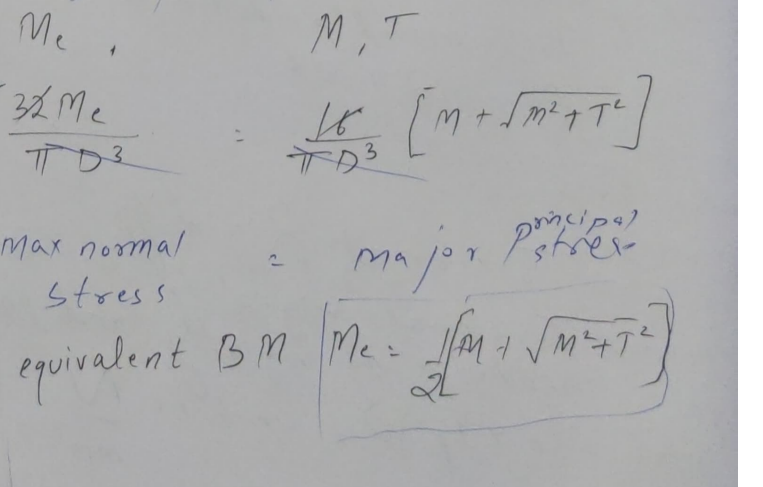 Me , M, T
32Me / πD³ = 16 / πD³ [M + √M²+T²]
Max normal stress = major principal stress
equivalent BM Me = 1/2 [M + √M²+T²]